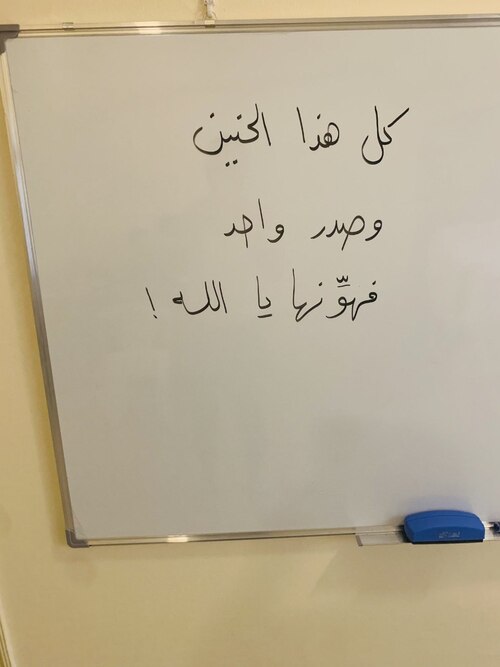 كل هذا الحنين
وصدر واحد
فهوّنها يا الله !